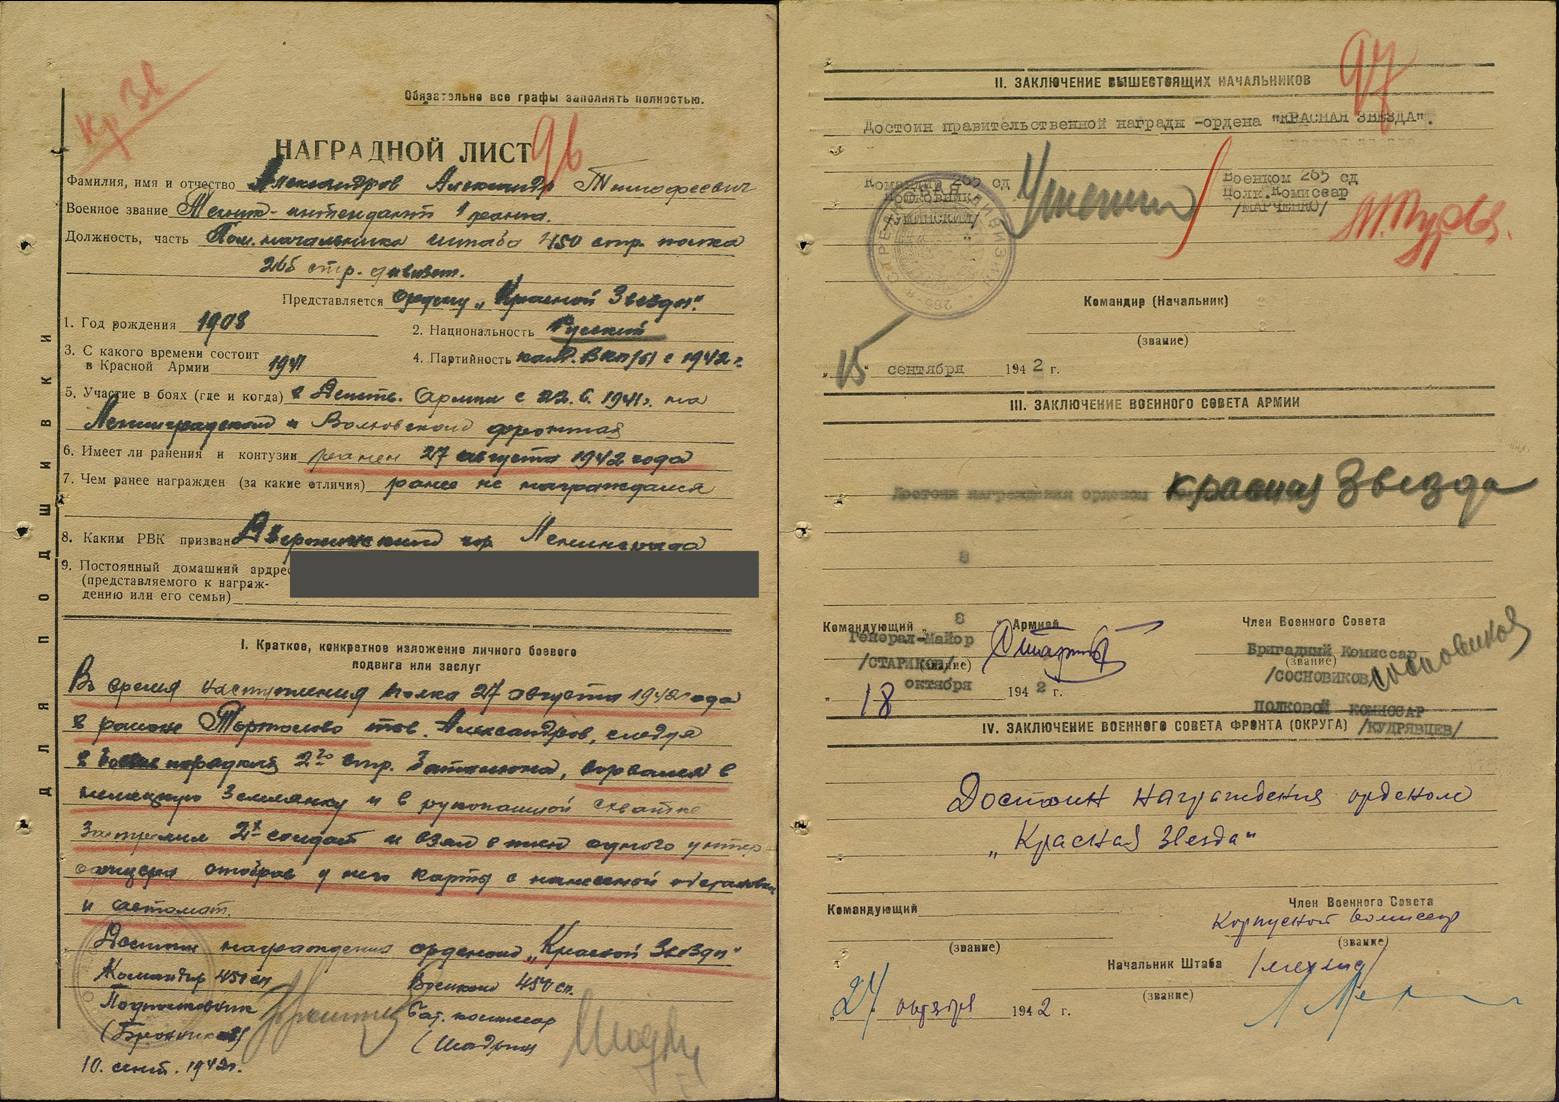 Кр Зв
Обязательно все графы заполнять полностью.
96
НАГРАДНОЙ ЛИСТ
Фамилия, имя и отчество Александров Александр Тимофеевич
Военное звание Техник-интендант 1 ранга.
Должность, часть Пом. начальника штаба 450 стр. полка
265 стр. дивизии.
Представляется ордену „Красной Звезды".
1. Год рождения 1908
2. Национальность Русский
3. С какого времени состоит
в Красной Армии 1941
4. Партийность канд. ВКП/б/ с 1942 г.
5. Участие в боях (где и когда) в Действ. Армии с 22.6.1941г. на
Ленинградском и Волховском фронтах
6. Имеет ли ранения и контузии ранен 27 августа 1942 года
7. Чем ранее награжден (за какие отличия) ранее не награждался
8. Каким РВК призван Дзержинский гор. Ленинграда
9. Постоянный домашний адрес
(представляемого к награж-
дению или его семьи)
ДЛЯ ПОДШИВКИ
I. Краткое, конкретное изложение личного боевого
подвига или заслуг
Во время наступления полка 27 августа 1942 года
в районе Тортолово тов. Александров, следуя
в боевых порядках 2го стр. батальона, ворвался в
немецкую землянку и в рукопашной схватке
застрелил 2х солдат и взял в плен одного унтер
офицера отобрав у него карты с нанесеной обстановкой
и автомат.
Достоин награждения орденом „Красной Звезды"
Командир 450 сп
Подполковник
(Бронников)
10. сент. 1942г.
Военком 450 сп.
Бат. комиссар
(Шадрин
97
II. ЗАКЛЮЧЕНИЕ ВЫШЕСТОЯЩИХ НАЧАЛЬНИКОВ
Достоин правительственной награды -ордена "КРАСНАЯ ЗВЕЗДА".
Командир 265 сд
Полковник
/УШИНСКИЙ/
Военком 265 сд
Полк.Комиссар
/МАРЧЕНКО/
Командир (Начальник)
(звание)
„15" сентября 1942 г.
III. ЗАКЛЮЧЕНИЕ ВОЕННОГО СОВЕТА АРМИИ
Достоин награждения орденом Красная Звезда
8
Командующий 8 Армией
Генерал-Майор
/СТАРИКОВ/ (звание)
18 октября 1942 г.
Член Военного Совета
Бригадный Комиссар
(звание)
/СОСНОВИКОВ/ Сосновиков
ПОЛКОВОЙ КОМИССАР
/КУДРЯВЦЕВ/
IV. ЗАКЛЮЧЕНИЕ ВОЕННОГО СОВЕТА ФРОНТА (ОКРУГА)
Достоин награждения орденом
„Красная Звезда"
Командующий
(звание)
Член Военного Совета
Корпусной Комиссар
(звание)
Начальник Штаба /Мехлис/
(звание)
„27" октября 1942 г.